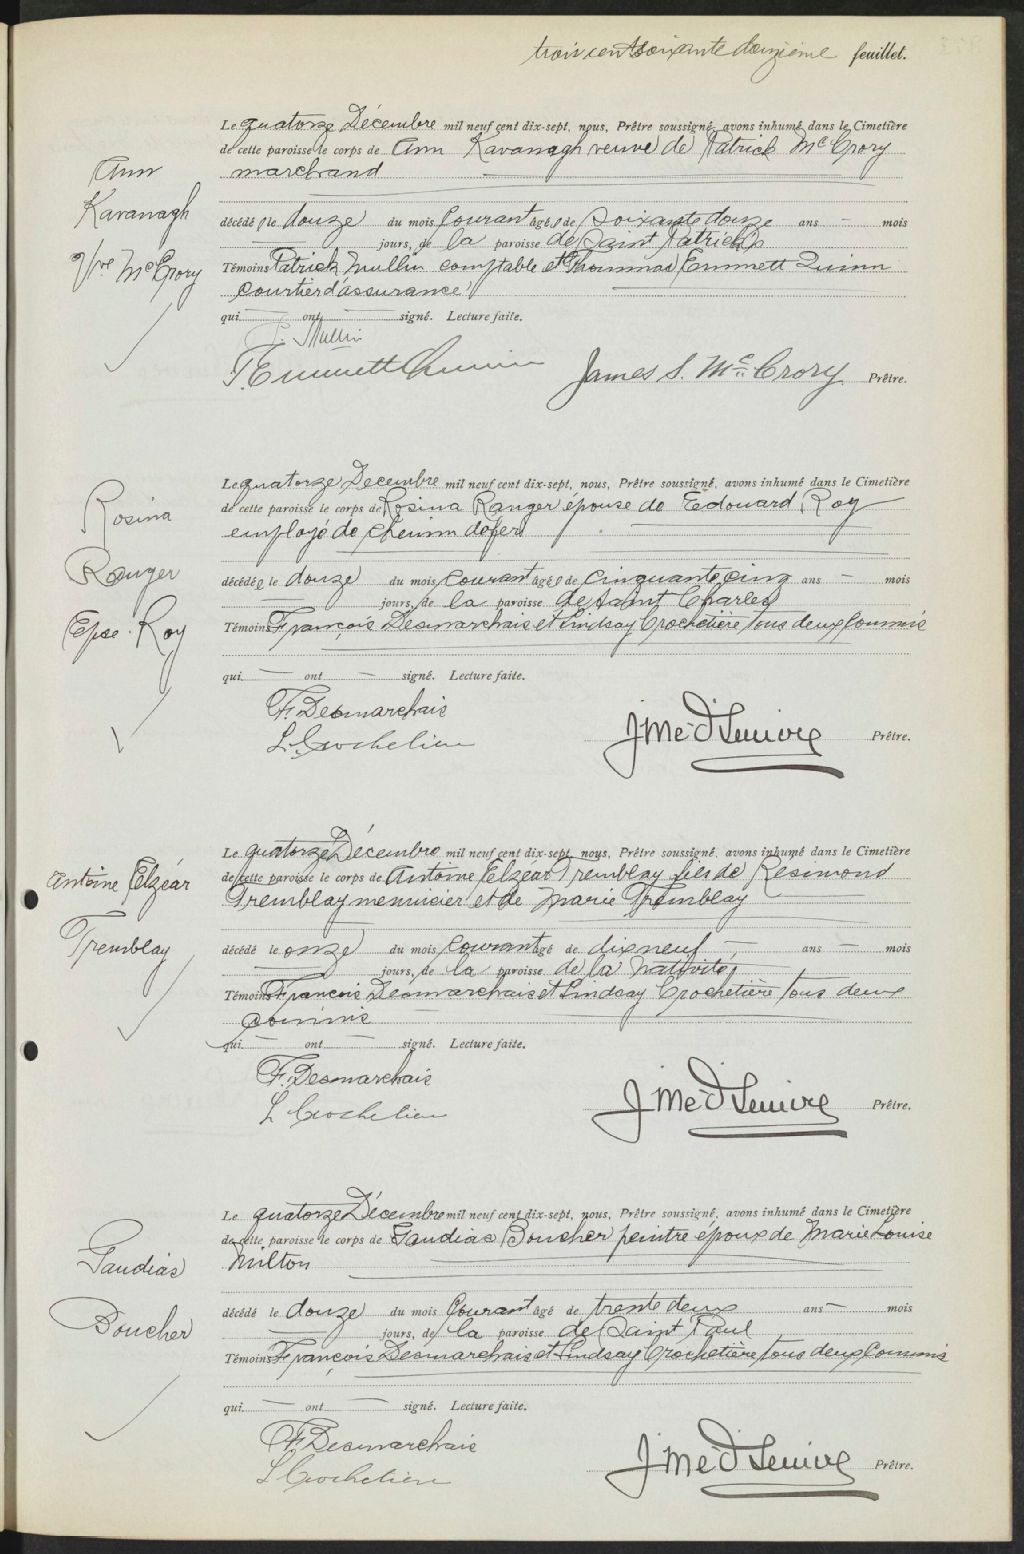 trois cent soixante douzième feuillet.
Ann
Kavanagh
Vve McCrory
Le quatorze Décembre mil neuf cent dix-sept, nous, Prêtre soussigné, avons inhumé dans le Cimetière
de cette paroisse le corps de Ann Kavanagh veuve de Patrick McCrory
marchand
décédée le douze du mois courant âgée de soixante douze ans — mois
— jours, de la paroisse de Saint Patrick
Témoins Patrick Mullin comptable et Thommas Emmett Quinn
courtier d'assurance
qui — ont — signé. Lecture faite.
P. Mullin
T. Emmett Quinn James S. McCrory Prêtre.
Rosina
Ranger
Epse. Roy
Le quatorze Decembre mil neuf cent dix-sept, nous, Prêtre soussigné, avons inhumé dans le Cimetière
de cette paroisse le corps de Rosina Ranger épouse de Edouard Roy
employé de chemin de fer
décédée le douze du mois courant âgée de cinquante cinq ans — mois
— jours, de la paroisse de Saint Charles
Témoins François Desmarchais et Lindsay Crochetière tous deux commis
qui — ont — signé. Lecture faite.
F. Desmarchais
L. Crochetiere Prêtre.
Antoine Elzéar
Tremblay
Le quatorze Décembre mil neuf cent dix-sept, nous, Prêtre soussigné, avons inhumé dans le Cimetière
de cette paroisse le corps de Antoine Elzéar Tremblay fils de Résimond
Tremblay menuisier et de Marie Tremblay
décédé le onze du mois courant âgé de dix neuf — ans — mois
— jours, de la paroisse de la Nativité
Témoins François Desmarchais et Lindsay Crochetière tous deux
commis
qui — ont — signé. Lecture faite.
F. Desmarchais
L Crochetiere Prêtre.
Gaudias
Boucher
Le quatorze Décembre mil neuf cent dix-sept, nous, Prêtre soussigné, avons inhumé dans le Cimetière
de cette paroisse le corps de Gaudias Boucher peintre époux de Marie Louise
Milton
décédé le douze du mois courant âgé de trente deux ans — mois
— jours, de la paroisse de Saint Paul
Témoins François Desmarchais et Lindsay Crochetière tous deux commis
qui — ont — signé. Lecture faite.
F. Desmarchais
L Crochetiere Prêtre.